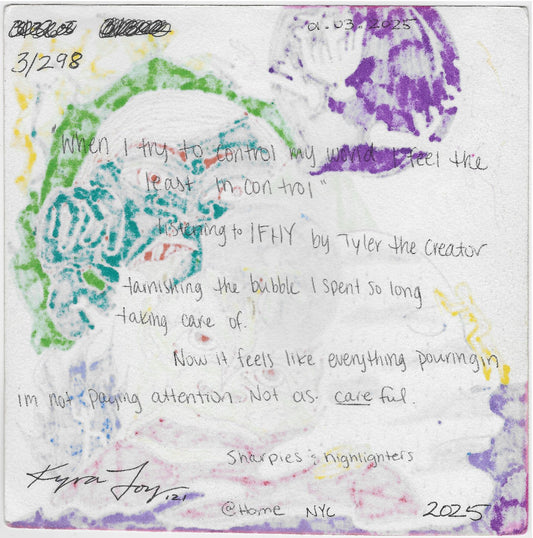 01.03.2025
3/298
"When I try to control my world I feel the
least in control"
listening to IFHY by Tyler the Creator
tarnishing the bubble I spent so long
taking care of.
Now it feels like everything pouring in
im not paying attention. Not as careful.
Sharpies & highlighters
Kyra Joy '21
@Home NYC 2025